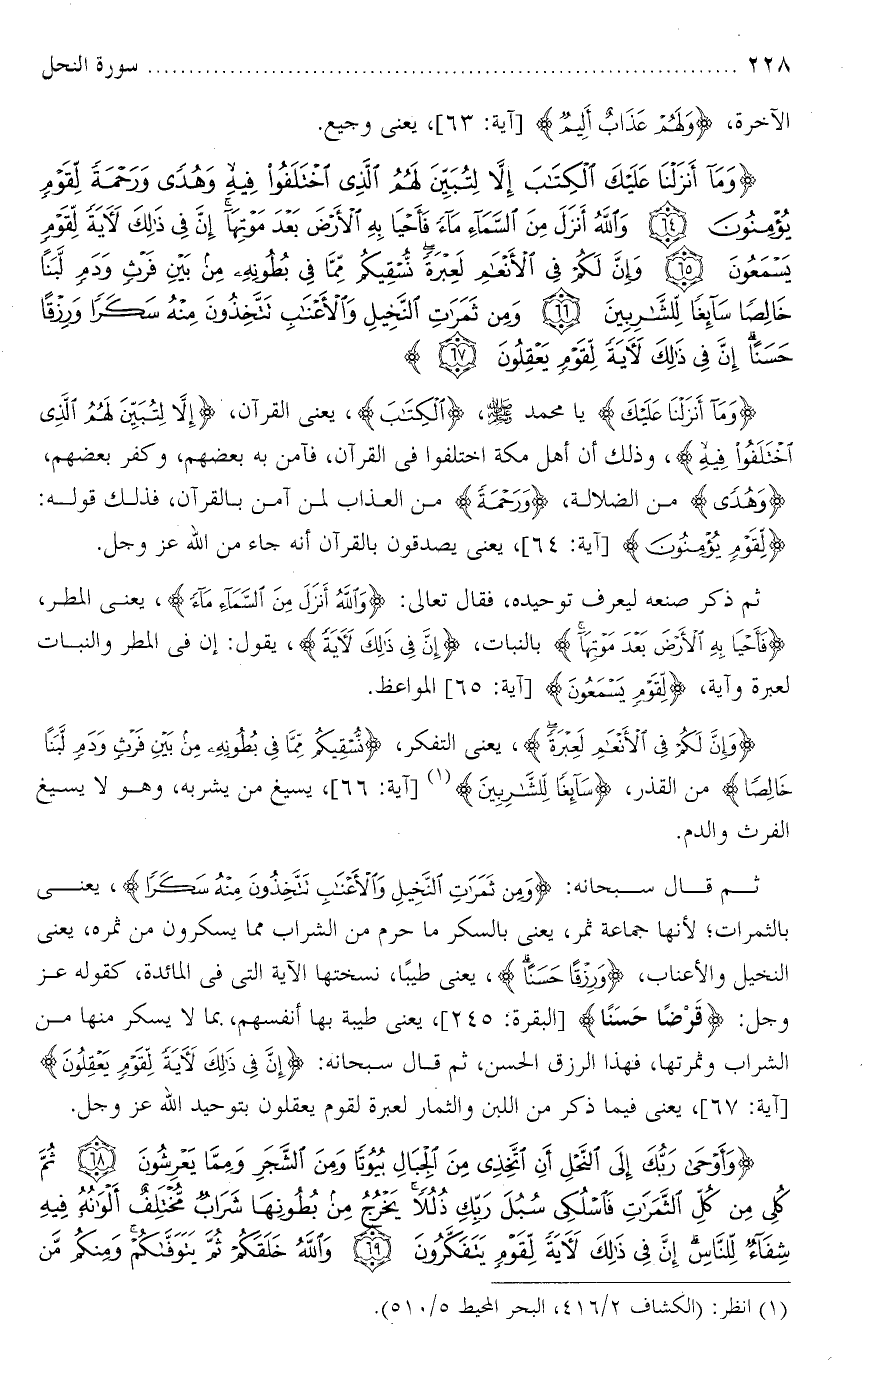 ٢٢٨ ........................................................................ سورة النحل
الآخرة، ﴿وَلَهُمْ عَذَابٌ أَلِيمٌ﴾ [آية: ٦٣]، يعنى وجيع.
﴿وَمَآ أَنزَلْنَا عَلَيْكَ ٱلْكِتَٰبَ إِلَّا لِتُبَيِّنَ لَهُمُ ٱلَّذِى ٱخْتَلَفُوا۟ فِيهِ ۙ وَهُدًى وَرَحْمَةً لِّقَوْمٍ
يُؤْمِنُونَ ٦٤ وَٱللَّهُ أَنزَلَ مِنَ ٱلسَّمَآءِ مَآءً فَأَحْيَا بِهِ ٱلْأَرْضَ بَعْدَ مَوْتِهَآ ۚ إِنَّ فِى ذَٰلِكَ لَءَايَةً لِّقَوْمٍ
يَسْمَعُونَ ٦٥ وَإِنَّ لَكُمْ فِى ٱلْأَنْعَٰمِ لَعِبْرَةً ۖ نُّسْقِيكُم مِّمَّا فِى بُطُونِهِۦ مِنۢ بَيْنِ فَرْثٍ وَدَمٍ لَّبَنًا
خَالِصًا سَآئِغًا لِّلشَّٰرِبِينَ ٦٦ وَمِن ثَمَرَٰتِ ٱلنَّخِيلِ وَٱلْأَعْنَٰبِ تَتَّخِذُونَ مِنْهُ سَكَرًا وَرِزْقًا
حَسَنًا ۗ إِنَّ فِى ذَٰلِكَ لَءَايَةً لِّقَوْمٍ يَعْقِلُونَ ٦٧ ﴾
﴿وَمَآ أَنزَلْنَا عَلَيْكَ﴾ يا محمد ﷺ، ﴿ٱلْكِتَٰبَ﴾، يعنى القرآن، ﴿إِلَّا لِتُبَيِّنَ لَهُمُ ٱلَّذِى
ٱخْتَلَفُوا۟ فِيهِ ۙ﴾، وذلك أن أهل مكة اختلفوا فى القرآن، فآمن به بعضهم، وكفر بعضهم،
﴿وَهُدًى﴾ من الضلالة، ﴿وَرَحْمَةً﴾ من العذاب لمن آمن بالقرآن، فذلك قوله:
﴿لِّقَوْمٍ يُؤْمِنُونَ﴾ [آية: ٦٤]، يعنى يصدقون بالقرآن أنه جاء من الله عز وجل.
ثم ذكر صنعه ليعرف توحيده، فقال تعالى: ﴿وَٱللَّهُ أَنزَلَ مِنَ ٱلسَّمَآءِ مَآءً﴾، يعنى المطر،
﴿فَأَحْيَا بِهِ ٱلْأَرْضَ بَعْدَ مَوْتِهَآ ۚ﴾ بالنبات، ﴿إِنَّ فِى ذَٰلِكَ لَءَايَةً﴾، يقول: إن فى المطر والنبات
لعبرة وآية، ﴿لِّقَوْمٍ يَسْمَعُونَ﴾ [آية: ٦٥] المواعظ.
﴿وَإِنَّ لَكُمْ فِى ٱلْأَنْعَٰمِ لَعِبْرَةً ۖ﴾، يعنى التفكر، ﴿نُّسْقِيكُم مِّمَّا فِى بُطُونِهِۦ مِنۢ بَيْنِ فَرْثٍ وَدَمٍ لَّبَنًا
خَالِصًا﴾ من القذر، ﴿سَآئِغًا لِّلشَّٰرِبِينَ﴾(١) [آية: ٦٦]، يسيغ من يشربه، وهو لا يسيغ
الفرث والدم.
ثم قال سبحانه: ﴿وَمِن ثَمَرَٰتِ ٱلنَّخِيلِ وَٱلْأَعْنَٰبِ تَتَّخِذُونَ مِنْهُ سَكَرًا﴾، يعنى
بالثمرات؛ لأنها جماعة ثمر، يعنى بالسكر ما حرم من الشراب مما يسكرون من ثمره، يعنى
النخيل والأعناب، ﴿وَرِزْقًا حَسَنًا ۗ﴾، يعنى طيبًا، نسختها الآية التى فى المائدة، كقوله عز
وجل: ﴿قَرْضًا حَسَنًا﴾ [البقرة: ٢٤٥]، يعنى طيبة بها أنفسهم، بما لا يسكر منها من
الشراب وثمرتها، فهذا الرزق الحسن، ثم قال سبحانه: ﴿إِنَّ فِى ذَٰلِكَ لَءَايَةً لِّقَوْمٍ يَعْقِلُونَ﴾
[آية: ٦٧]، يعنى فيما ذكر من اللبن والثمار لعبرة لقوم يعقلون بتوحيد الله عز وجل.
﴿وَأَوْحَىٰ رَبُّكَ إِلَى ٱلنَّحْلِ أَنِ ٱتَّخِذِى مِنَ ٱلْجِبَالِ بُيُوتًا وَمِنَ ٱلشَّجَرِ وَمِمَّا يَعْرِشُونَ ٦٨ ثُمَّ
كُلِى مِن كُلِّ ٱلثَّمَرَٰتِ فَٱسْلُكِى سُبُلَ رَبِّكِ ذُلُلًا ۚ يَخْرُجُ مِنۢ بُطُونِهَا شَرَابٌ مُّخْتَلِفٌ أَلْوَٰنُهُۥ فِيهِ
شِفَآءٌ لِّلنَّاسِ ۗ إِنَّ فِى ذَٰلِكَ لَءَايَةً لِّقَوْمٍ يَتَفَكَّرُونَ ٦٩ وَٱللَّهُ خَلَقَكُمْ ثُمَّ يَتَوَفَّىٰكُمْ ۚ وَمِنكُم مَّن
(١) انظر: (الكشاف ٤١٦/٢، البحر المحيط ٥١٠/٥).